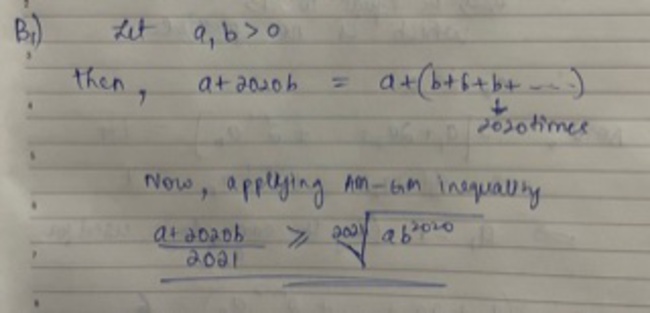 B1) Let a, b > 0
then, a + 2020b = a + (b+b+b+ ----)
↓
2020 times
Now, applying AM-GM inequality
a+2020b / 2021 ≥ ²⁰²¹√ab²⁰²⁰